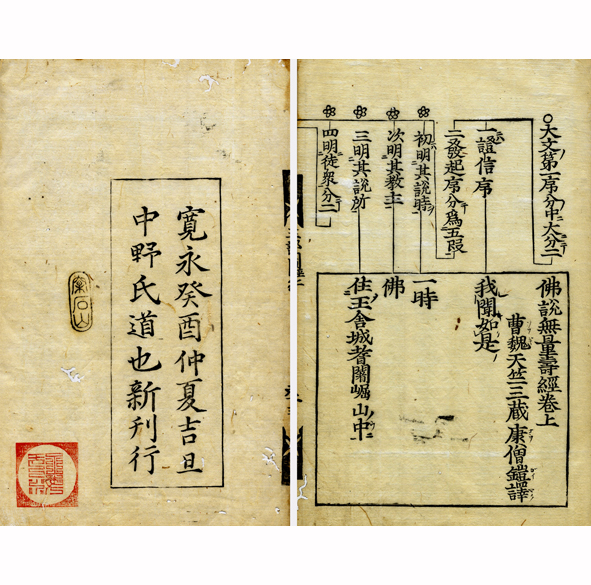 ○大文第一席分中大分二
一證信席
二發起席分為五段
初明其說時
次明其教主
三明其說所
四明徒衆分二
佛說無量壽經卷上
曹魏天竺三藏康僧鎧譯
我聞如是
一時
佛
住王舍城耆闍崛山中
寬永癸酉仲夏吉旦
中野氏道也新刊行